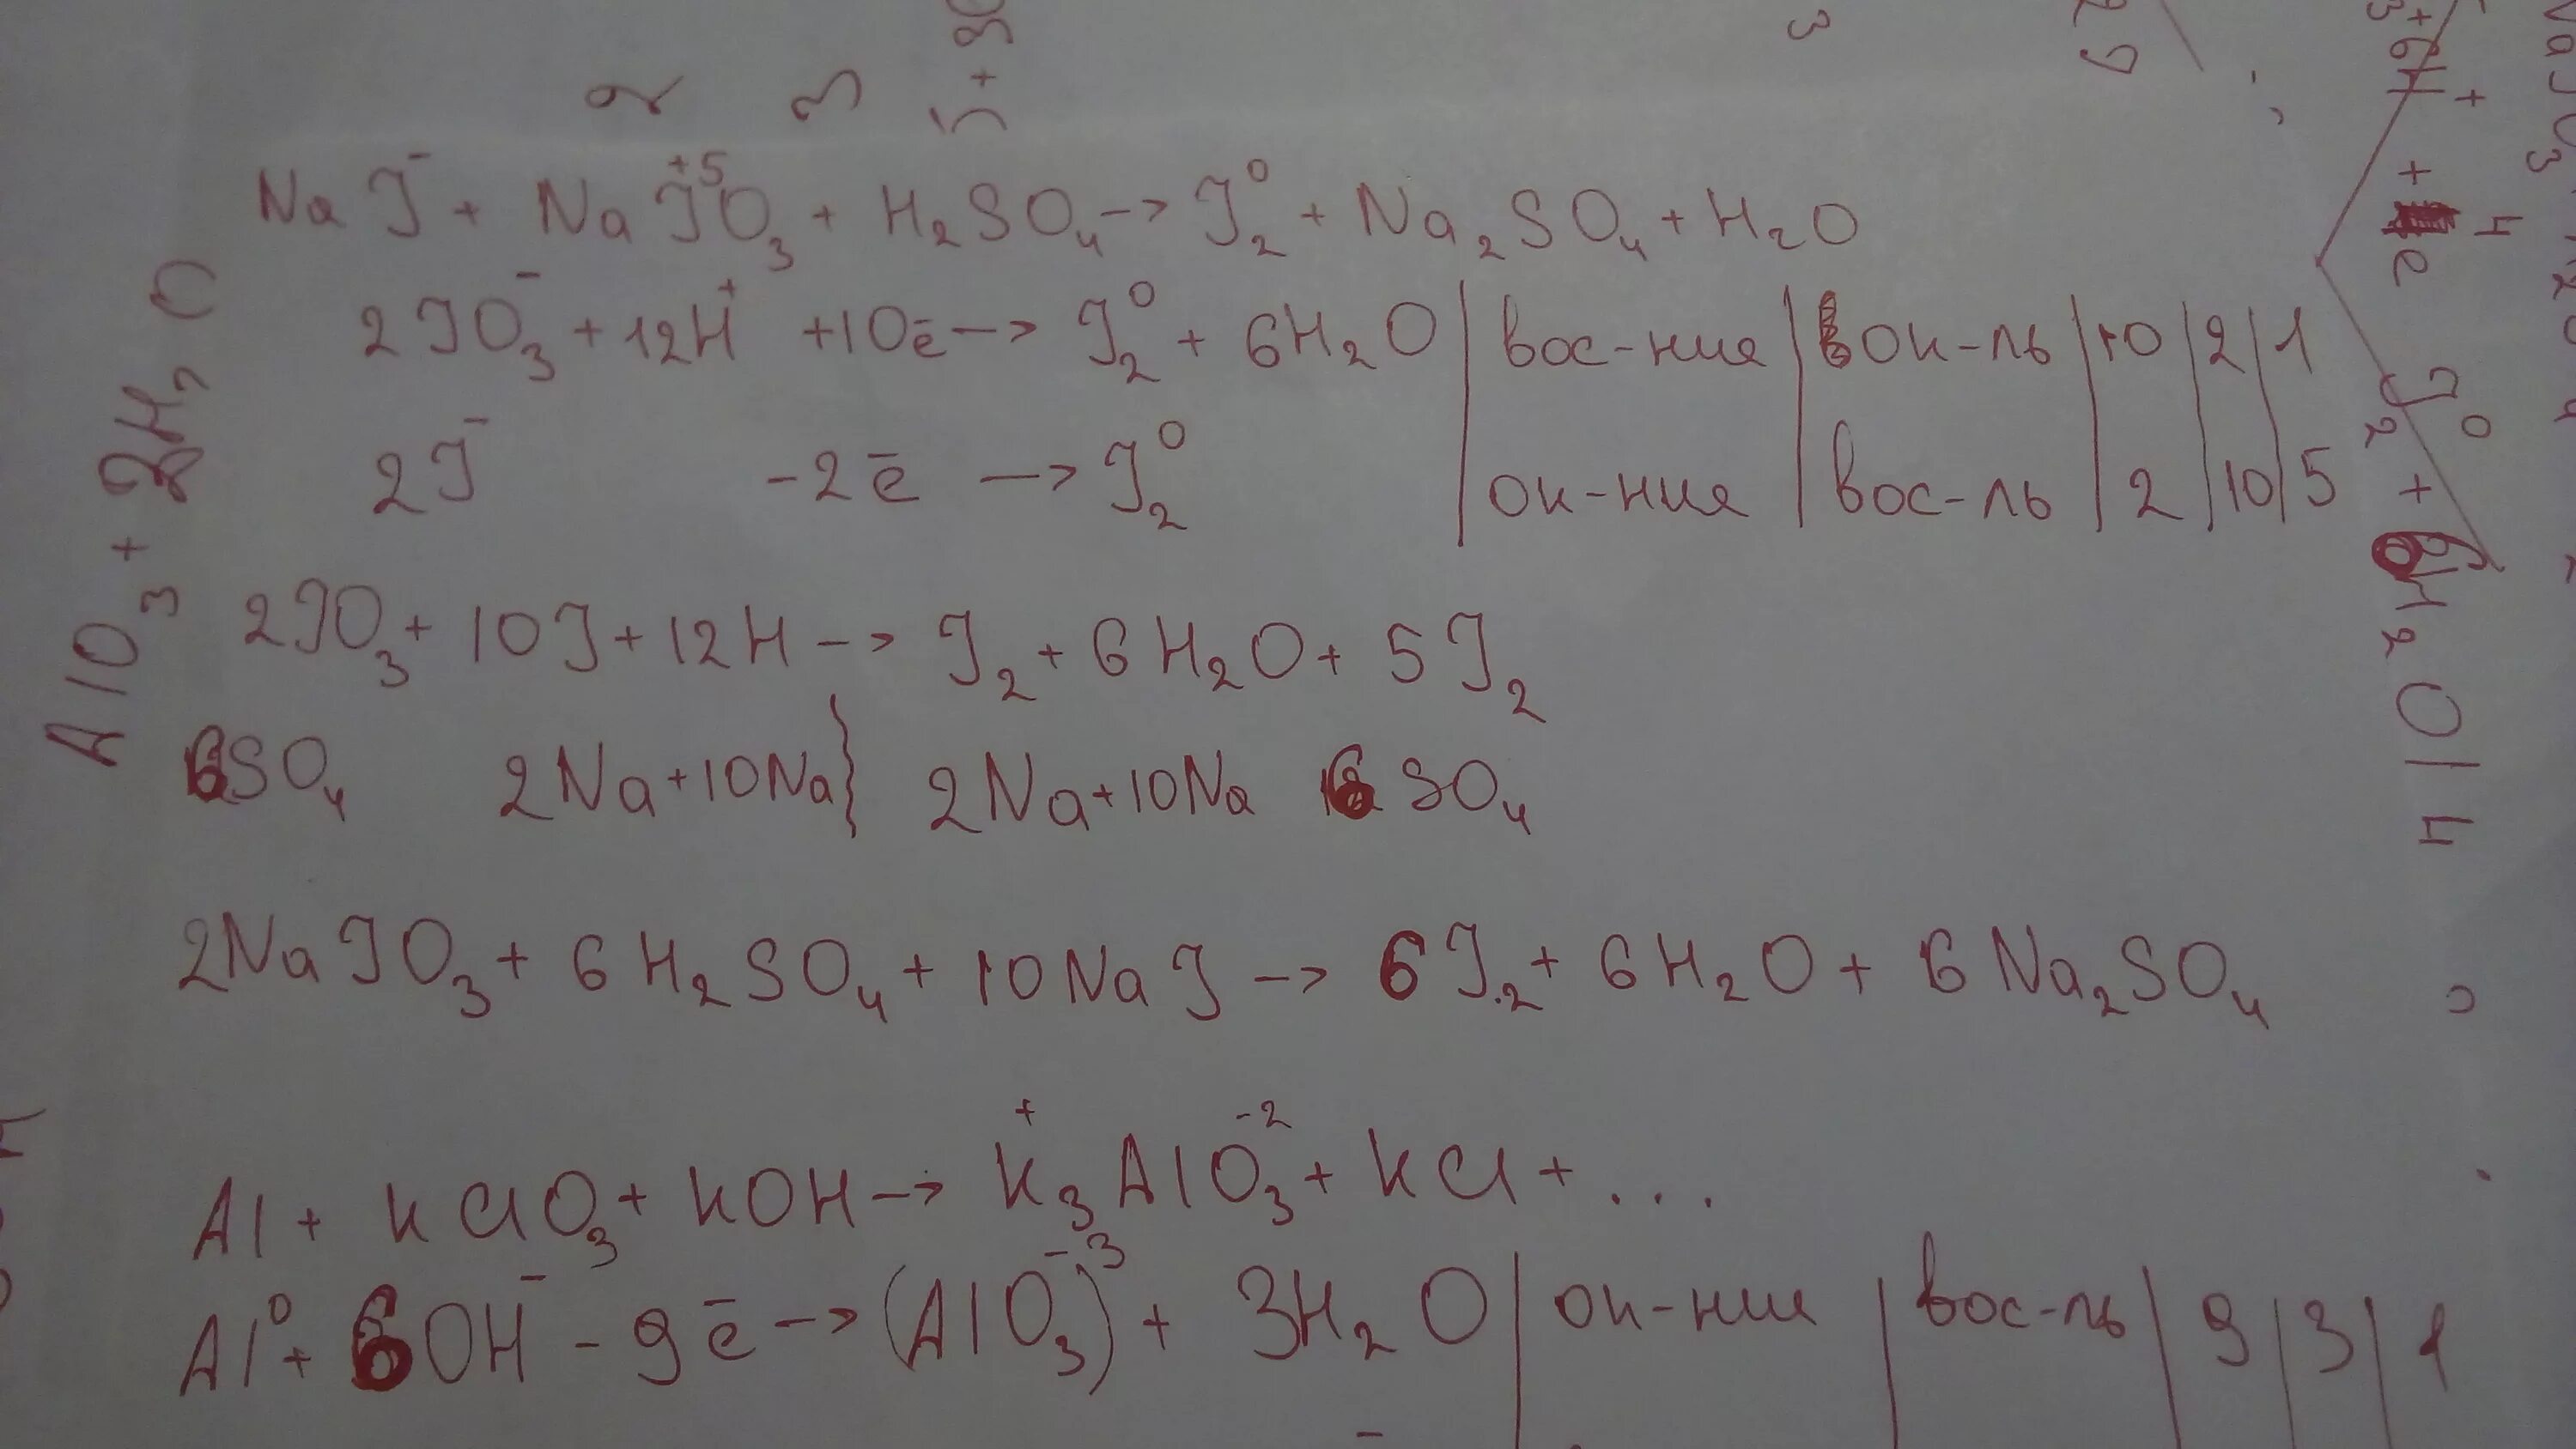 NaJ⁻ + NaJ⁺⁵O₃ + H₂SO₄ -> J₂⁰ + Na₂SO₄ + H₂O
2JO₃⁻ + 12H⁺ + 10ē -> J₂⁰ + 6H₂O | вос-ние | ок-ль | 10 | 2 | 1
2J⁻ - 2ē -> J₂⁰ | ок-ние | вос-ль | 2 | 10 | 5
2JO₃ + 10J + 12H -> J₂ + 6H₂O + 5J₂
6SO₄ 2Na + 10Na } 2Na + 10Na 6SO₄
2NaJO₃ + 6H₂SO₄ + 10NaJ -> 6J₂ + 6H₂O + 6Na₂SO₄
Al + KClO₃ + KOH -> K⁺₃AlO₃⁻² + KCl + ...
Al⁰ + 6OH⁻ - 9ē -> (AlO₃)⁻³ + 3H₂O | ок-ние | вос-ль | 9 | 3 | 1